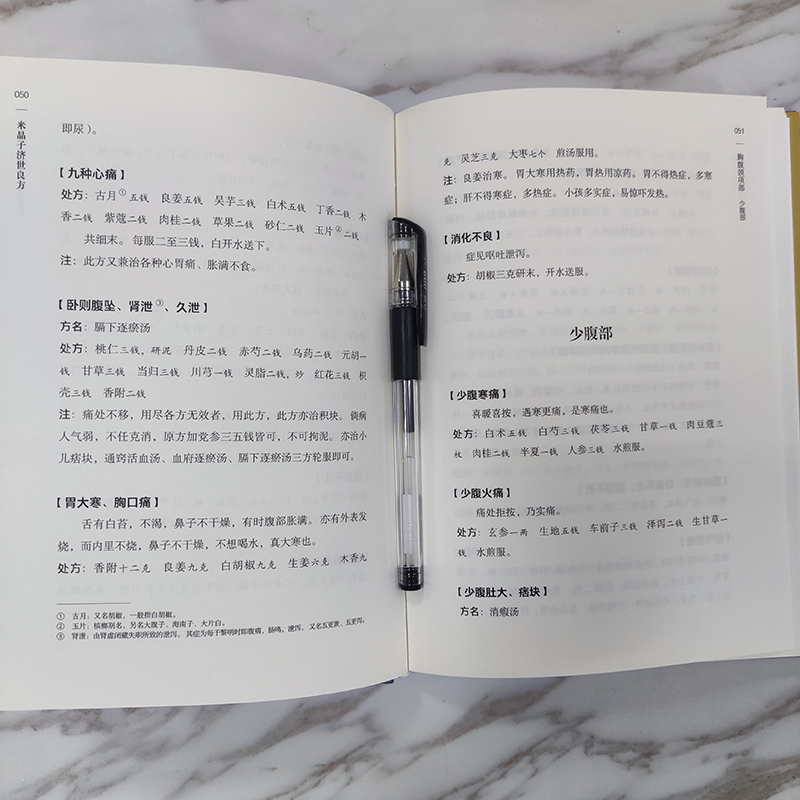 050
米晶子济世良方
即尿)。
【九种心痛】
处方：古月①五钱 良姜五钱 吴芋三钱 白术五钱 丁香二钱 木
香二钱 紫蔻二钱 肉桂二钱 草果二钱 砂仁二钱 玉片②二钱
共细末。每服二至三钱，白开水送下。
注：此方又兼治各种心胃痛、胀满不食。
【卧则腹坠、肾泄③、久泄】
方名：膈下逐瘀汤
处方：桃仁三钱，研泥 丹皮二钱 赤芍二钱 乌药二钱 元胡一
钱 甘草三钱 当归三钱 川芎一钱 灵脂二钱，炒 红花三钱 枳
壳三钱 香附二钱
注：痛处不移，用尽各方无效者，用此方，此方亦治积块。倘病
人气弱，不任克消，原方加党参三五钱皆可，不可拘泥。亦治小
儿痞块，通窍活血汤、血府逐瘀汤、膈下逐瘀汤三方轮服即可。
【胃大寒、胸口痛】
舌有白苔，不渴，鼻子不干燥，有时腹部胀满。亦有外表发
烧，而内里不烧，鼻子不干燥，不想喝水，真大寒也。
处方：香附十二克 良姜九克 白胡椒九克 生姜六克 木香九
① 古月：又名胡椒，一般指白胡椒。
② 玉片：槟榔别名，另名大腹子、海南子、大片白。
③ 肾泄：由肾虚闭藏失职所致的泄泻。其症为每于黎明时即腹痛，肠鸣，泄泻。又名五更泄、五更泻。
051
胸腹颈项部 少腹部
克 灵芝三克 大枣七个 煎汤服用。
注：良姜治寒。胃大寒用热药，胃热用凉药。胃不得热症，多寒
症；肝不得寒症，多热症。小孩多实症，易惊吓发热。
【消化不良】
症见呕吐泄泻。
处方：胡椒三克研末，开水送服。
少腹部
【少腹寒痛】
喜暖喜按，遇寒更痛，是寒痛也。
处方：白术五钱 白芍三钱 茯苓三钱 甘草一钱 肉豆蔻三
枚 肉桂二钱 半夏一钱 人参三钱 水煎服。
【少腹火痛】
痛处拒按，乃实痛。
处方：玄参一两 生地五钱 车前子三钱 泽泻二钱 生甘草一
钱 水煎服。
【少腹肚大、痞块】
方名：消瘕汤